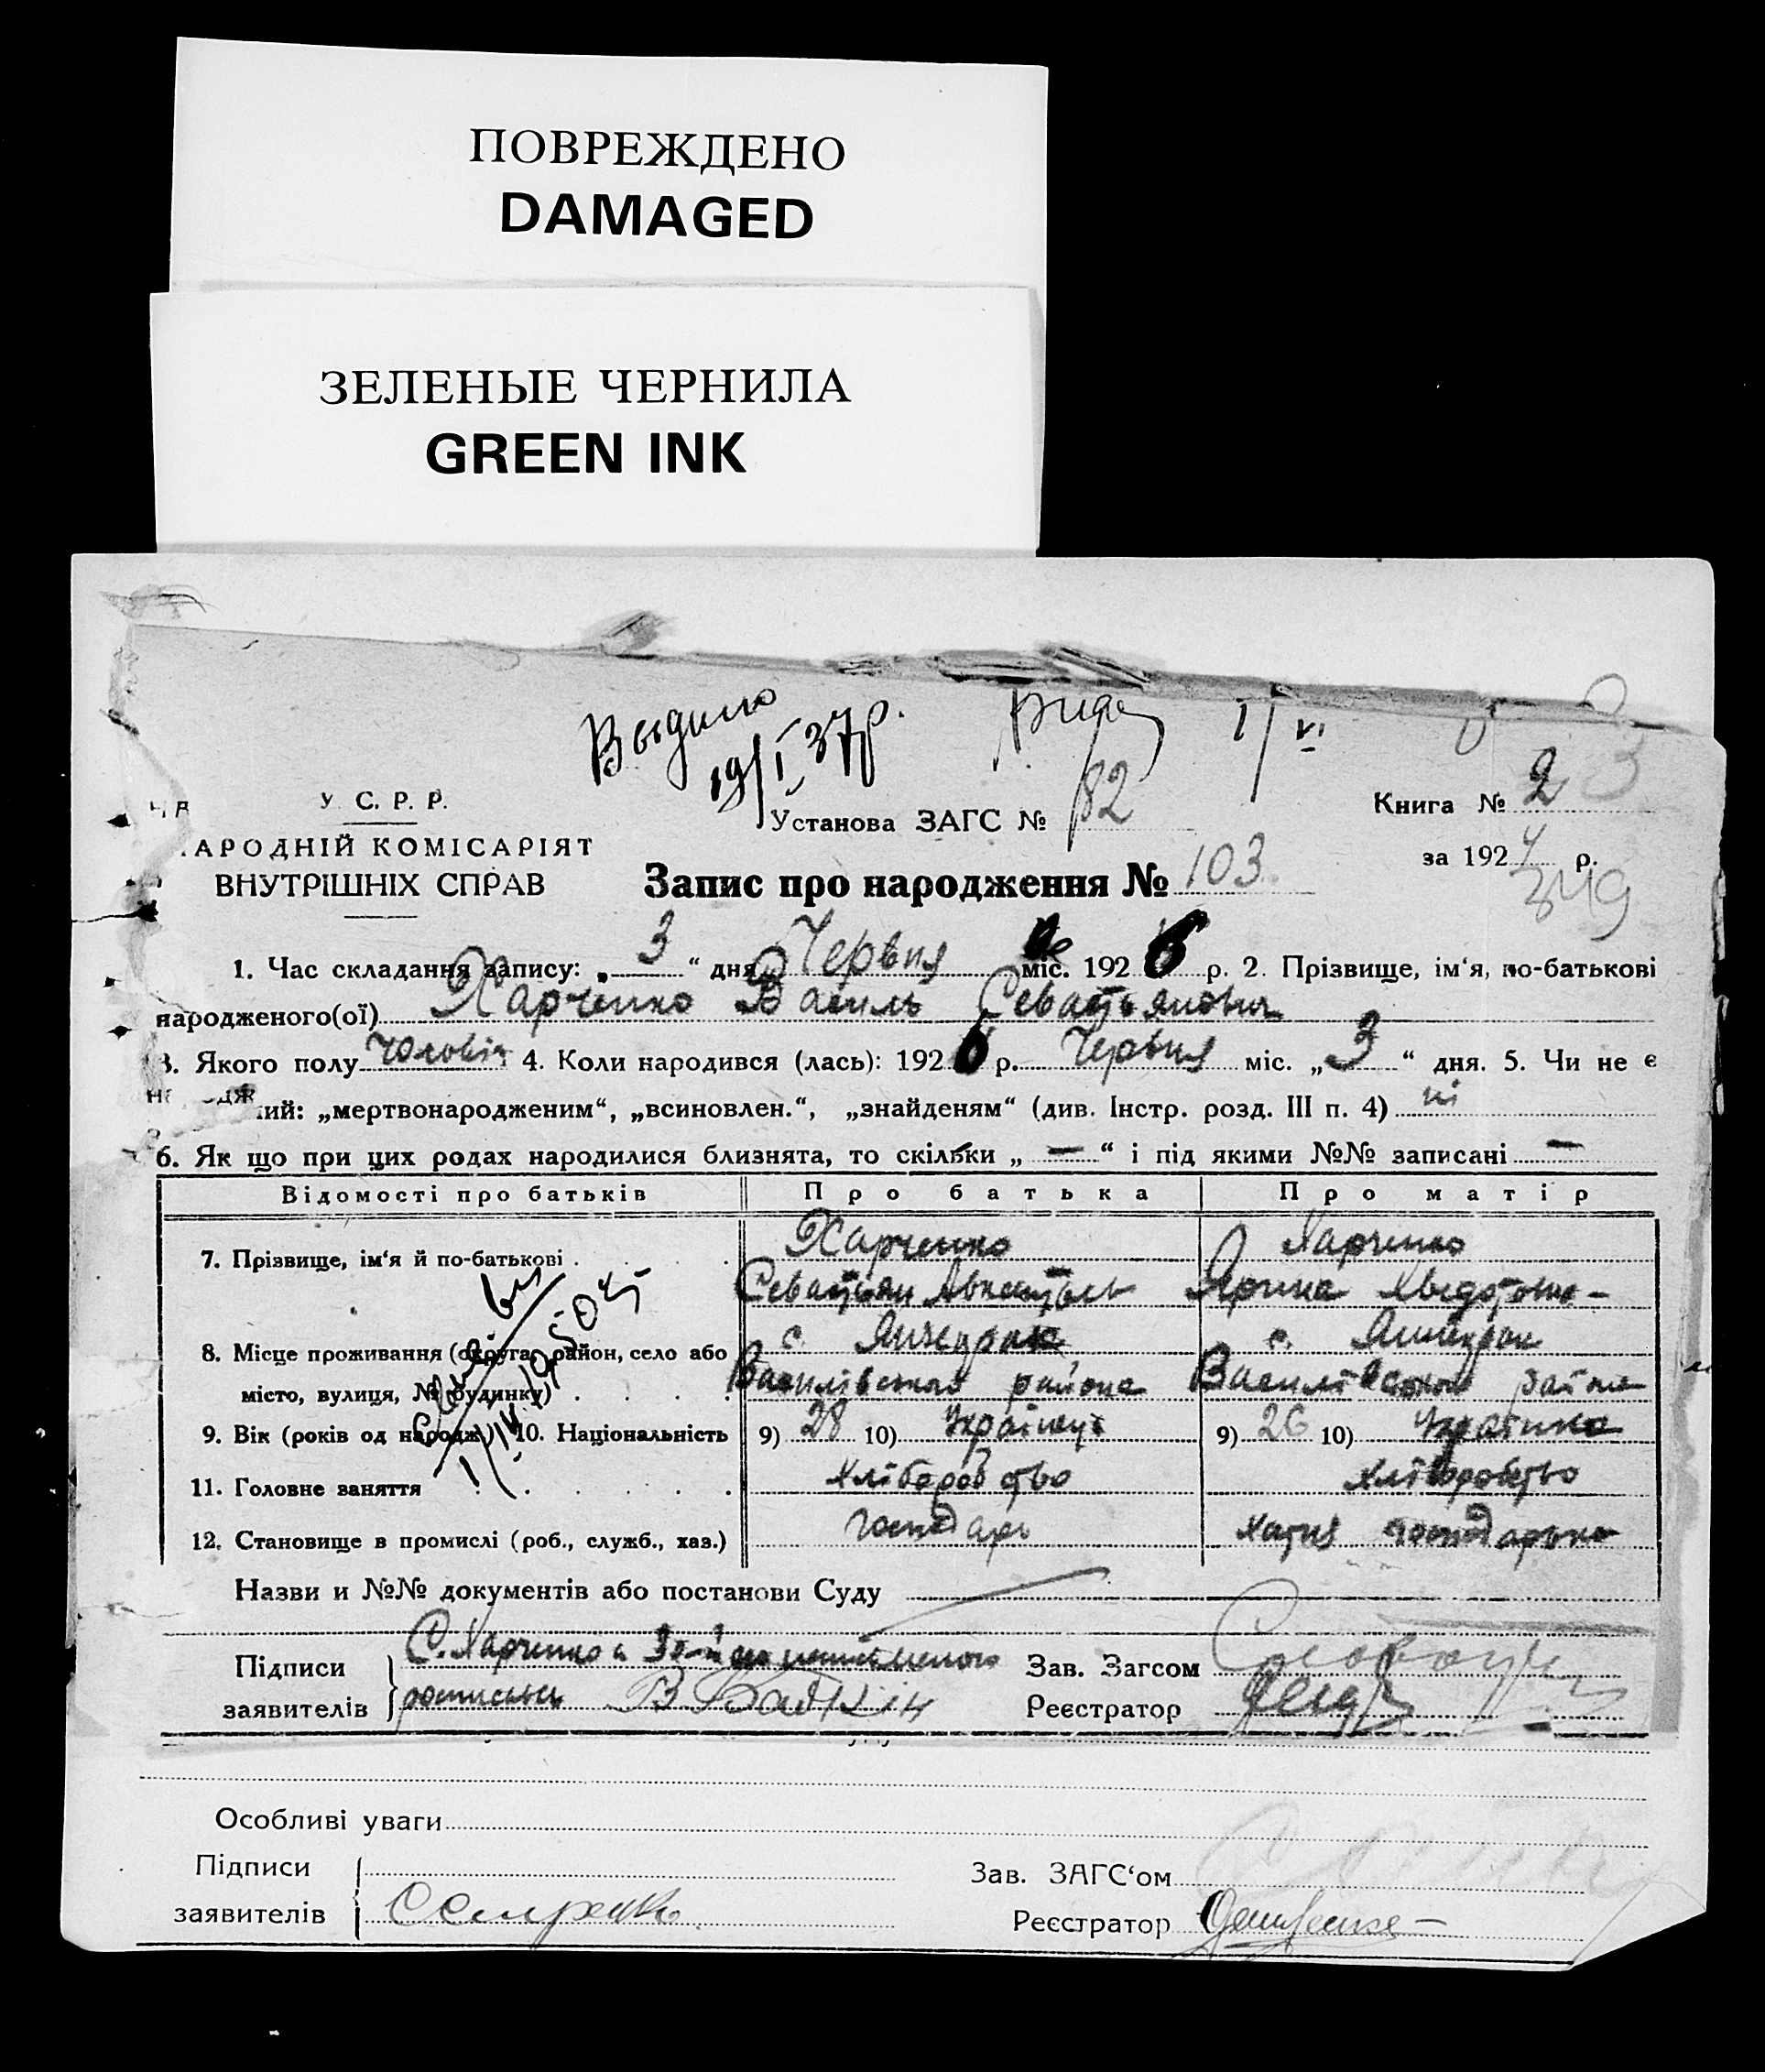 ПОВРЕЖДЕНО
DAMAGED
ЗЕЛЕНЫЕ ЧЕРНИЛА
GREEN INK
Выдано
19/I 37р.
1/VI
У. С. Р. Р.
АРОДНІЙ КОМІСАРІЯТ
ВНУТРІШНІХ СПРАВ
Установа ЗАГС № 82
Книга № 2
за 192 р.
349
Запис про народження № 103
1. Час складання запису: „ 3 “ дня Червня міс. 1926 р. 2. Прізвище, ім'я, по-батькові
народженого(ої) Харченко Василь Севастьянович
3. Якого полу Чоловіч 4. Коли народився (лась): 1926 р. Червня міс. „ 3 “ дня. 5. Чи не є
ий: „мертвонародженим“, „всиновлен.“, „знайденям“ (див. Інстр. розд. III п. 4) ні
6. Як що при цих родах народилися близнята, то скільки „ — “ і під якими №№ записані —
Відомості про батьків Про батька Про матір
7. Прізвище, ім'я й по-батькові . . Харченко Харченко
Севастьян Ярина
8. Місце проживання (округа, район, село або с. Янчекрак с. Янчекрак
місто, вулиця, № будинку) . . . . Василівського района Василівського района
9. Вік (років од народж.) 10. Національність 9) 28 10) Українець 9) 26 10) Українка
11. Головне заняття . . . . . . Хліборобство Хліборобство
12. Становище в промислі (роб., служб., хаз.) господарь хатня господарька
Назви и №№ документів або постанови Суду
Підписи С. Харченко Зав. Загсом
заявителів Реєстратор
Особливі уваги
Підписи Зав. ЗАГС'ом
заявителів Реєстратор